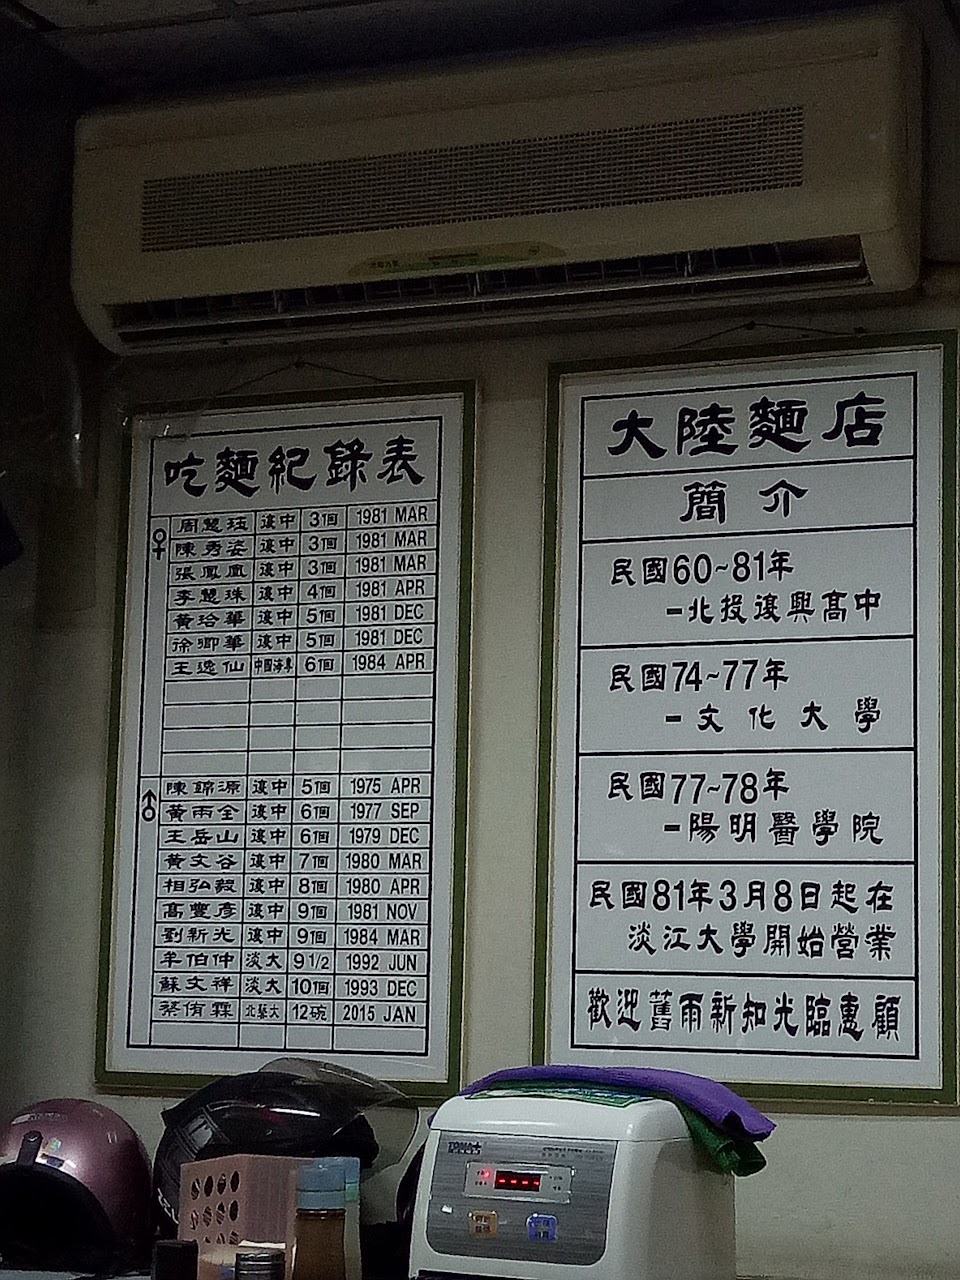 吃麵紀錄表
♀
周慧珏 復中 3個 1981 MAR
陳秀姿 復中 3個 1981 MAR
張鳳凰 復中 3個 1981 MAR
李慧珠 復中 4個 1981 APR
黃玲華 復中 5個 1981 DEC
徐卿華 復中 5個 1981 DEC
王逸仙 中國海專 6個 1984 APR
♂
陳錦源 復中 5個 1975 APR
黃雨全 復中 6個 1977 SEP
王岳山 復中 6個 1979 DEC
黃文谷 復中 7個 1980 MAR
相弘毅 復中 8個 1980 APR
髙豐彥 復中 9個 1981 NOV
劉新光 復中 9個 1984 MAR
牟伯仲 淡大 9 1/2 1992 JUN
蘇文祥 淡大 10個 1993 DEC
蔡侑霖 北藝大 12碗 2015 JAN
大陸麵店
簡介
民國60~81年
-北投復興髙中
民國74~77年
-文化大學
民國77~78年
-陽明醫學院
民國81年3月8日起在
淡江大學開始營業
歡迎舊雨新知光臨惠顧